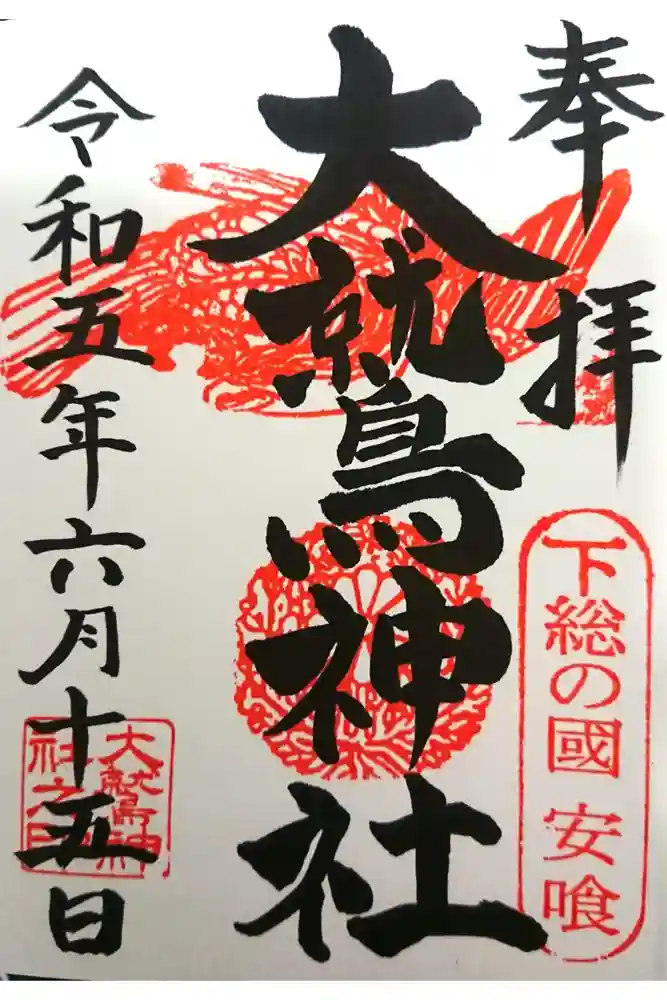 奉拝
下総の國 安喰
大鷲神社
令和五年六月十五日
大鷲神
社之印